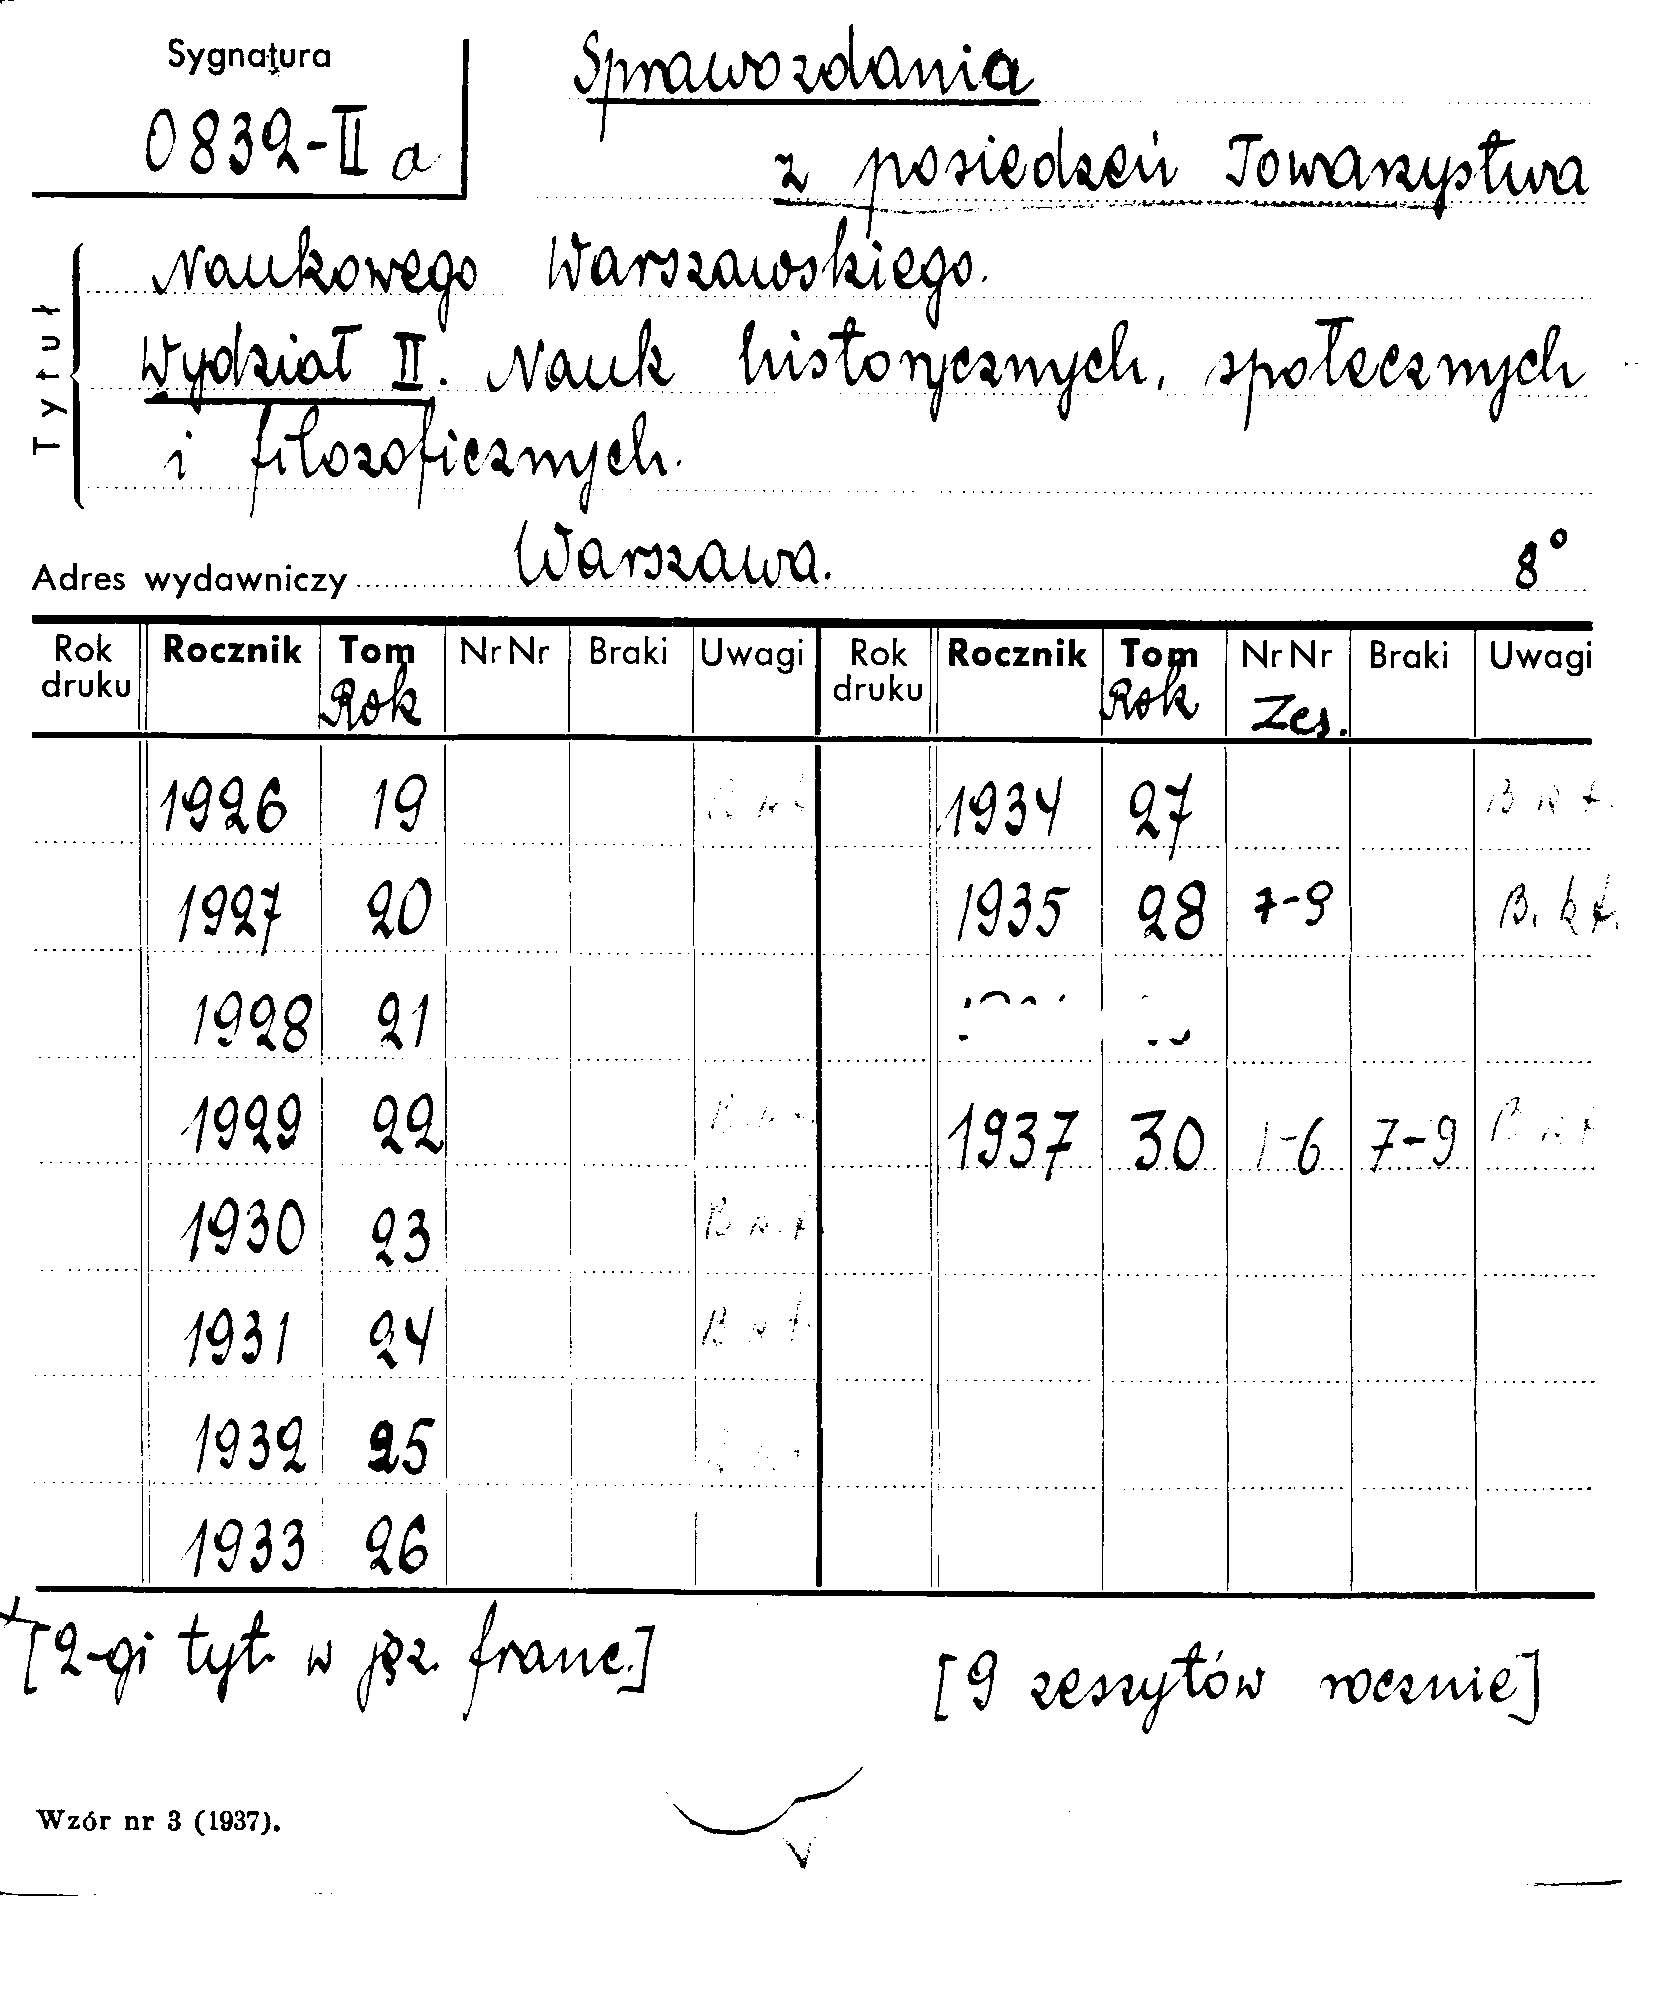 Sygnatura
0832-II a
Sprawozdania
z posiedzeń Towarzystwa
Naukowego Warszawskiego.
Wydział II. Nauk historycznych, społecznych
i filozoficznych.
Tytuł
Adres wydawniczy Warszawa. 8°
Rok druku Rocznik Tom Rok NrNr Braki Uwagi Rok druku Rocznik Tom Rok NrNr Zes. Braki Uwagi
1926 19 1934 27
1927 20 1935 28 7-9
1928 21
1929 22 1937 30 1-6 7-9
1930 23
1931 24
1932 25
1933 26
[2-gi tyt. w jęz. franc.] [9 zeszytów rocznie]
Wzór nr 3 (1937).